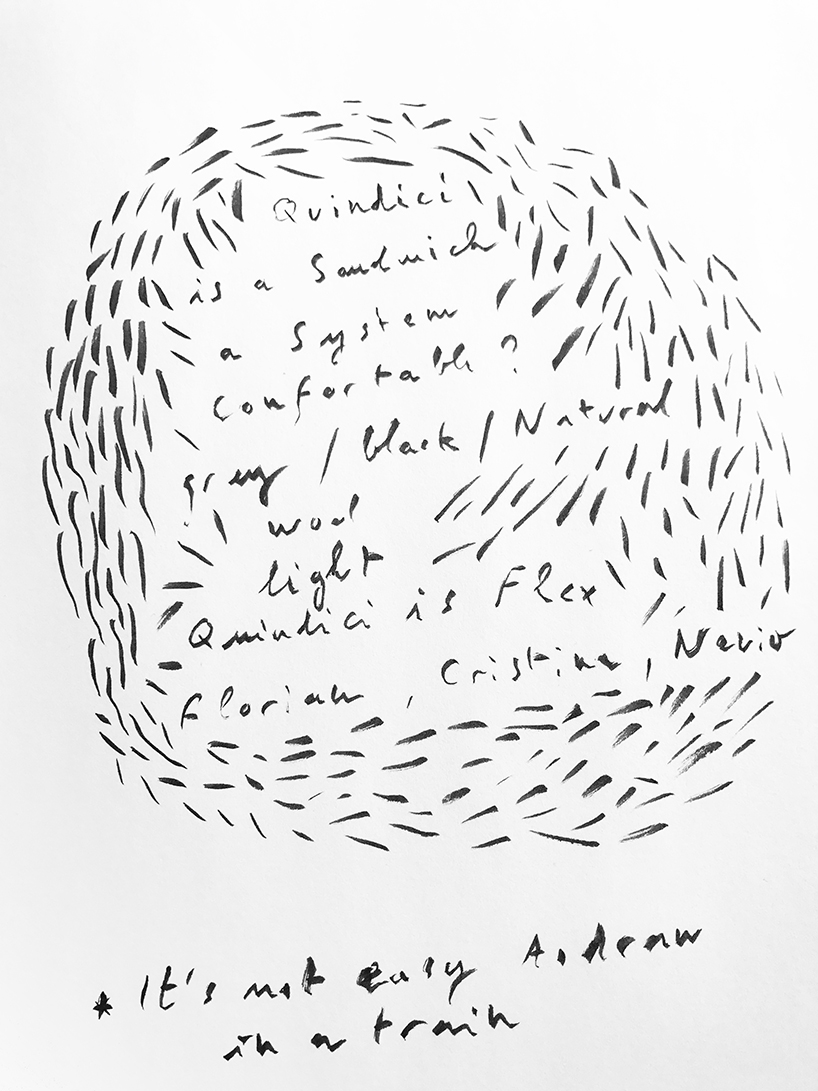 Quindici
is a Sandwich
a System
Confortable ?
grey / black / Natural
wool
light
Quindici is Flex
Florian , Cristina , Nevio
* It's not easy to draw
in a train